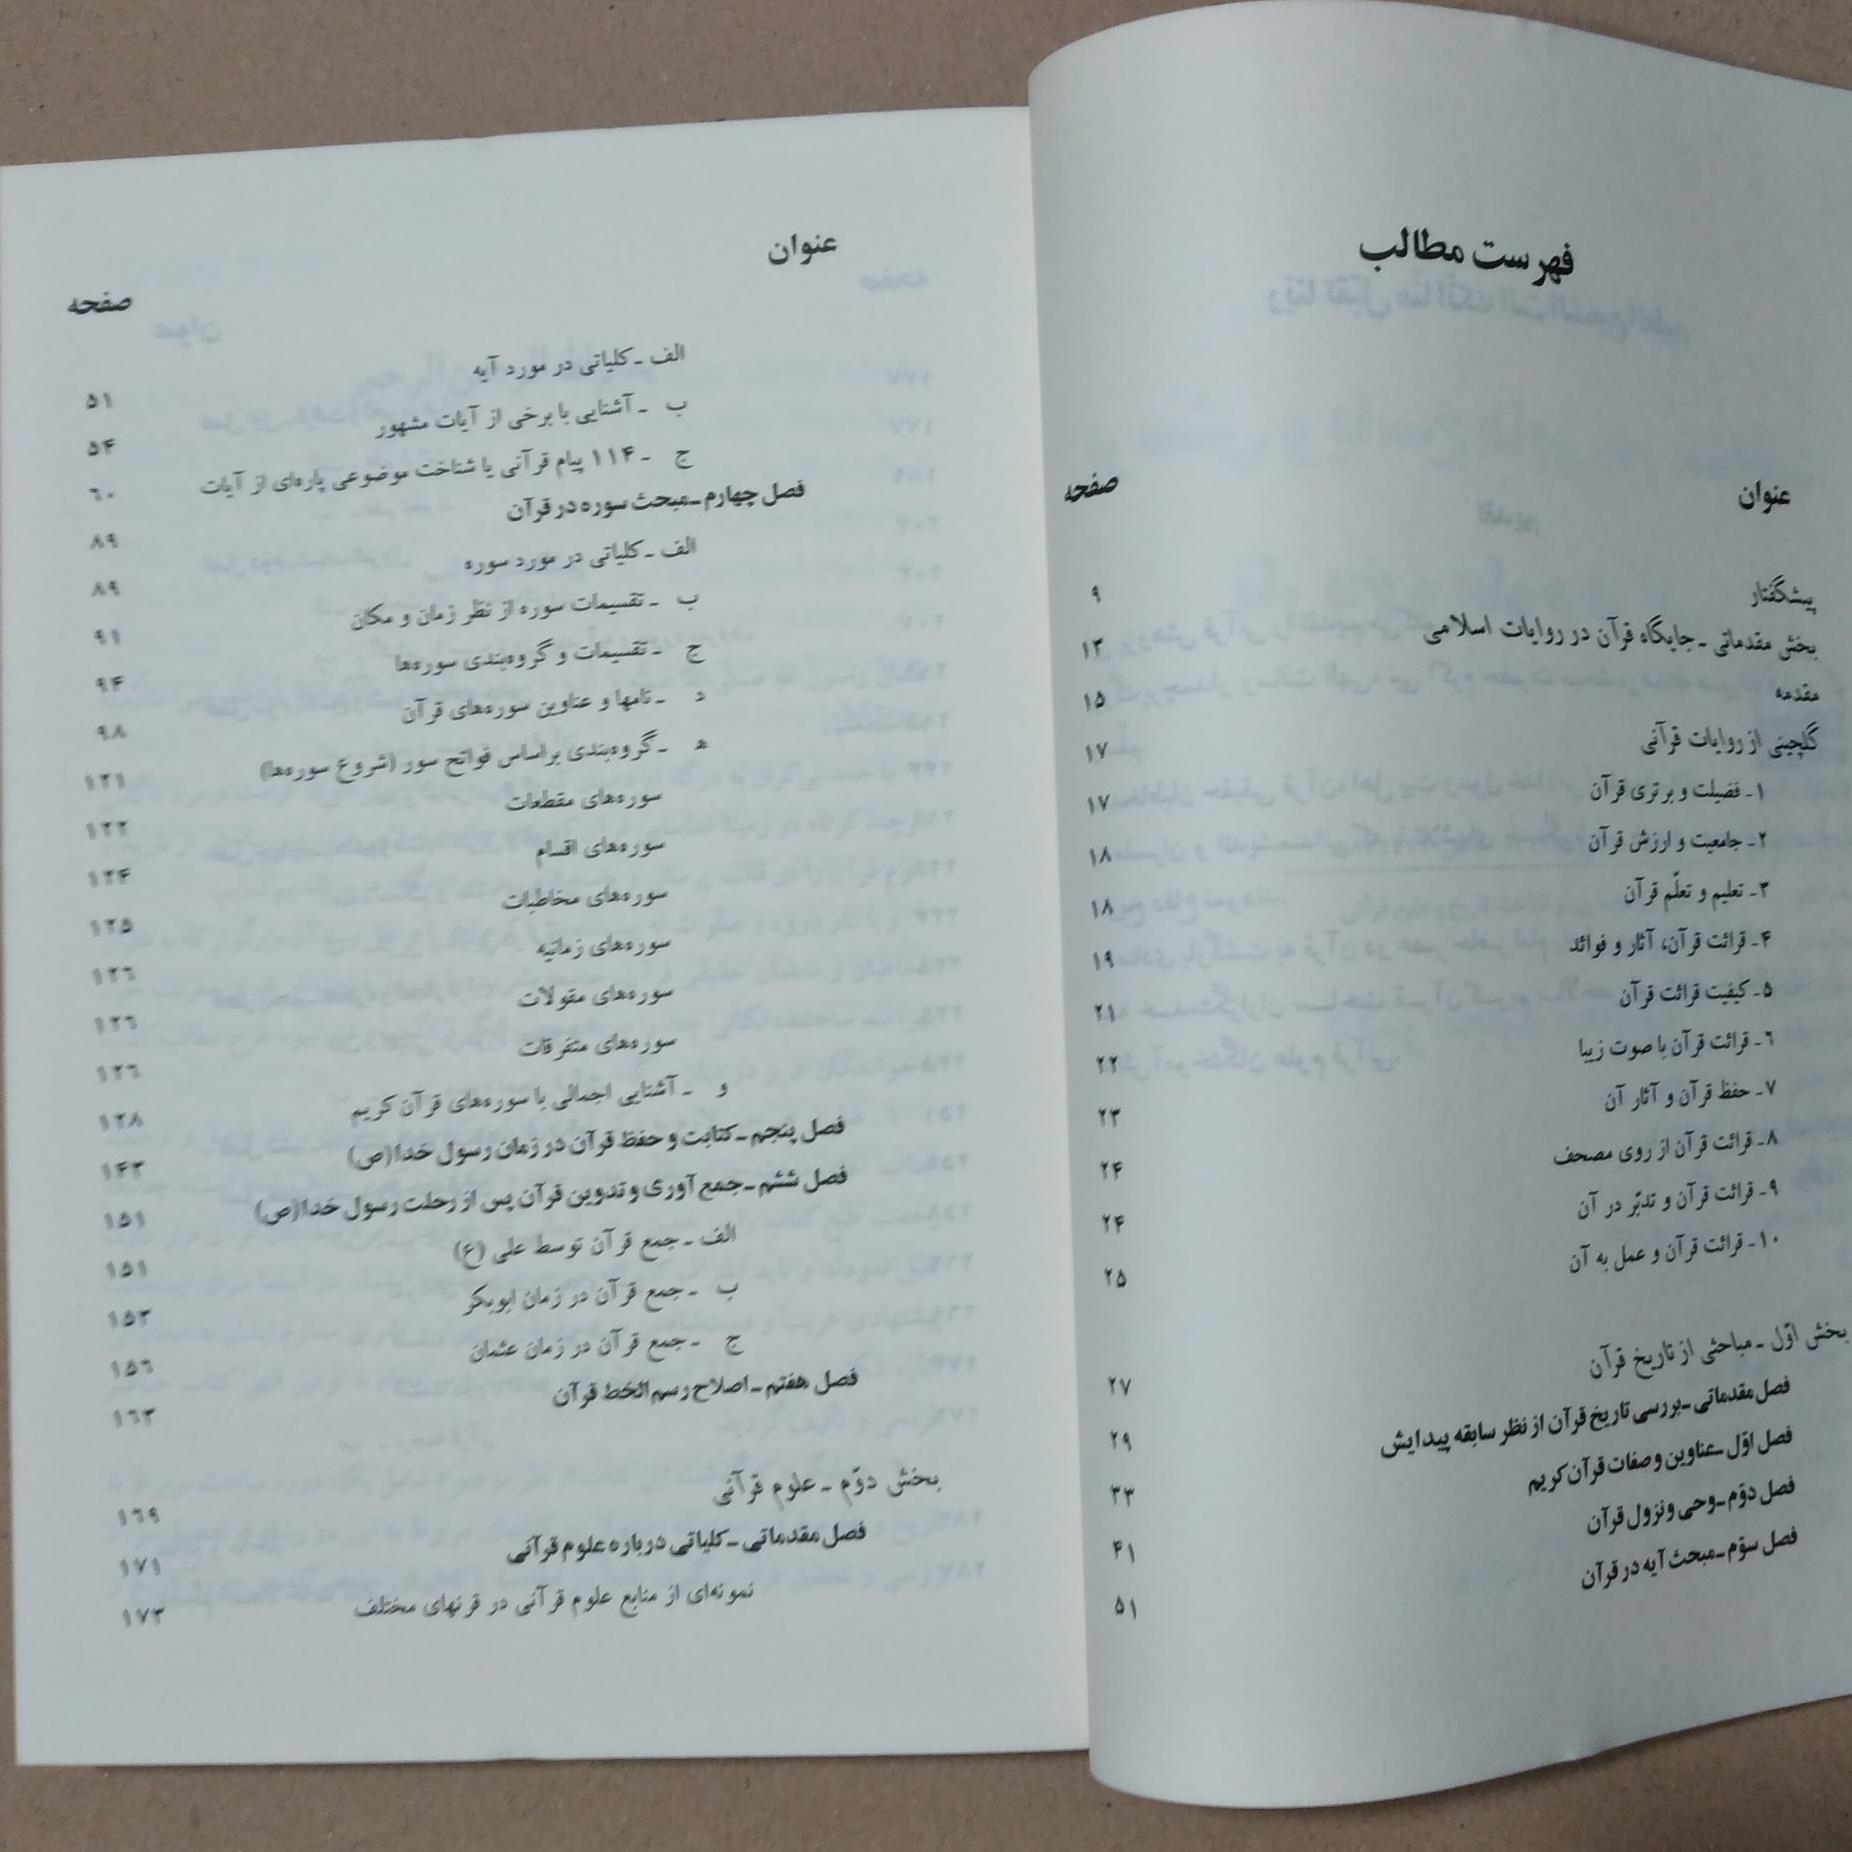 فهرست مطالب
عنوان صفحه
پیشگفتار ۹
بخش مقدماتی ـ جایگاه قرآن در روایات اسلامی ۱۳
مقدمه ۱۵
گلچینی از روایات قرآنی ۱۷
۱ـ فضیلت و برتری قرآن ۱۷
۲ـ جامعیت و ارزش قرآن ۱۸
۳ـ تعلیم و تعلّم قرآن ۱۸
۴ـ قرائت قرآن، آثار و فوائد ۱۹
۵ـ کیفیت قرائت قرآن ۲۱
۶ـ قرائت قرآن با صوت زیبا ۲۲
۷ـ حفظ قرآن و آثار آن ۲۳
۸ـ قرائت قرآن از روی مصحف ۲۴
۹ـ قرائت قرآن و تدبّر در آن ۲۴
۱۰ـ قرائت قرآن و عمل به آن ۲۵
بخش اوّل ـ مباحثی از تاریخ قرآن ۲۷
فصل مقدماتی ـ بررسی تاریخ قرآن از نظر سابقه پیدایش ۲۹
فصل اوّل ـ عناوین و صفات قرآن کریم ۳۳
فصل دوّم ـ وحی و نزول قرآن ۴۱
فصل سوّم ـ مبحث آیه در قرآن ۵۱
عنوان صفحه
الف ـ کلیاتی در مورد آیه ۵۱
ب ـ آشنایی با برخی از آیات مشهور ۵۴
ج ـ ۱۱۴ پیام قرآنی یا شناخت موضوعی پاره‌ای از آیات ۶۰
فصل چهارم ـ مبحث سوره در قرآن ۸۹
الف ـ کلیاتی در مورد سوره ۸۹
ب ـ تقسیمات سوره از نظر زمان و مکان ۹۱
ج ـ تقسیمات و گروه‌بندی سوره‌ها ۹۴
د ـ نامها و عناوین سوره‌های قرآن ۹۸
ه ـ گروه‌بندی براساس فواتح سور (شروع سوره‌ها) ۱۲۱
سوره‌های مقطعات ۱۲۲
سوره‌های اقسام ۱۲۴
سوره‌های مخاطبات ۱۲۵
سوره‌های زمانیّه ۱۲۶
سوره‌های مقولات ۱۲۶
سوره‌های متفرقات ۱۲۶
و ـ آشنایی اجمالی با سوره‌های قرآن کریم ۱۲۸
فصل پنجم ـ کتابت و حفظ قرآن در زمان رسول خدا(ص) ۱۴۳
فصل ششم ـ جمع آوری و تدوین قرآن پس از رحلت رسول خدا(ص) ۱۵۱
الف ـ جمع قرآن توسط علی (ع) ۱۵۱
ب ـ جمع قرآن در زمان ابوبکر ۱۵۳
ج ـ جمع قرآن در زمان عثمان ۱۵۶
فصل هفتم ـ اصلاح رسم الخط قرآن ۱۶۳
بخش دوّم ـ علوم قرآنی ۱۶۹
فصل مقدماتی ـ کلیاتی درباره علوم قرآنی ۱۷۱
نمونه‌ای از منابع علوم قرآنی در قرنهای مختلف ۱۷۳